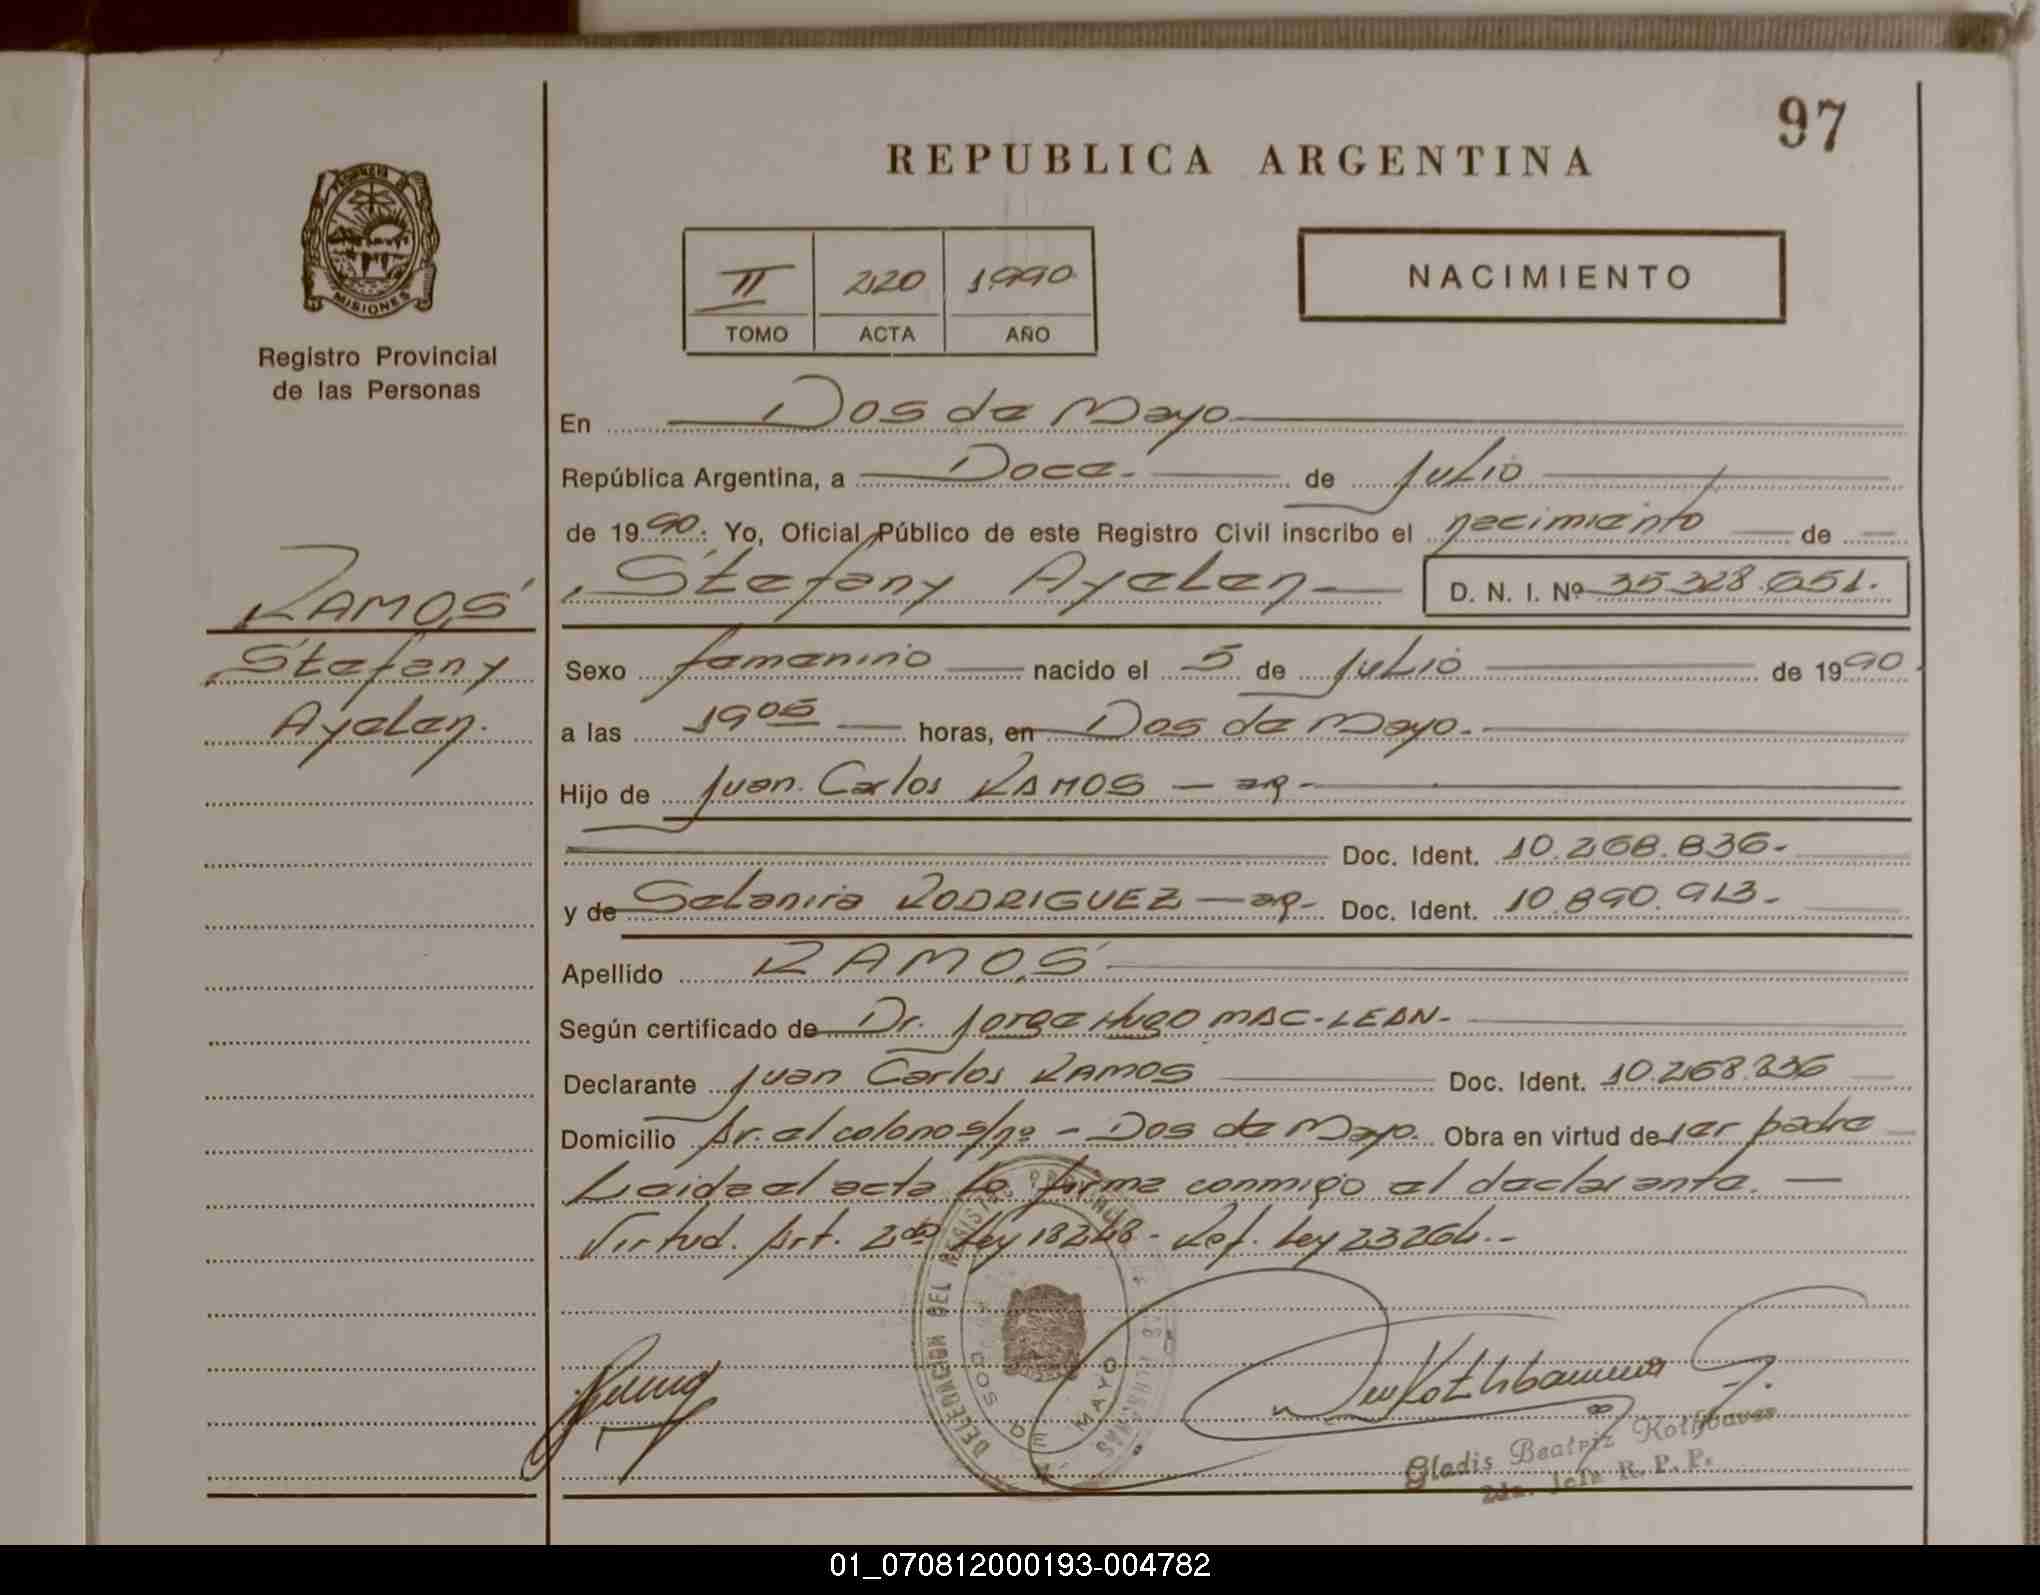 97
REPUBLICA ARGENTINA
PROVINCIA DE
MISIONES
Registro Provincial
de las Personas
II 220 1990
TOMO ACTA AÑO
NACIMIENTO
En Dos de Mayo
República Argentina, a Doce.- de Julio
de 1990: Yo, Oficial Público de este Registro Civil inscribo el nacimiento de
RAMOS
Stefany
Ayelen.
Stefany Ayelen D. N. I. Nº 35.328.651.
Sexo femenino nacido el 5 de Julio de 1990.
a las 19 05 horas, en Dos de Mayo.-
Hijo de Juan Carlos RAMOS - ar -
Doc. Ident. 10.268.836-
y de Selanira RODRIGUEZ - ar- Doc. Ident. 10.890.913-
Apellido RAMOS
Según certificado de Dr. Jorge Hugo MAC-LEAN-
Declarante Juan Carlos RAMOS Doc. Ident. 10.268.836
Domicilio Av. el colono s/nº - Dos de Mayo. Obra en virtud de ser padre
Leida el acta la firma conmigo el declarante. -
Virtud. Art. 2do Ley 18248 - Ref. Ley 23264.-
DELEGACION DEL REGISTRO PROVINCIAL DE LAS PERSONAS
DOS DE MAYO
Gladis Beatriz Kothbauer
2da. Jefa R. P. P.
01_070812000193-004782